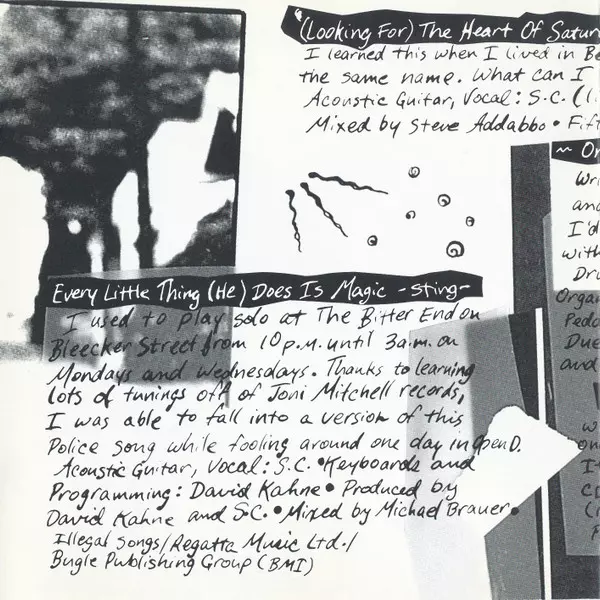 (Looking For) The Heart Of Satur
I learned this when I lived in Be
the same name. What can I
Acoustic Guitar, Vocal: S.C. (li
Mixed by Steve Addabbo • Fift
~ Or
Wri
and
I'd
with
Dru
Organ
Pedo
Due
and
Every Little Thing (He) Does Is Magic -Sting-
I used to play solo at The Bitter End on
Bleecker Street from 10 p.m. until 3 a.m. on
Mondays and Wednesdays. Thanks to learning
lots of tunings off of Joni Mitchell records,
I was able to fall into a version of this
Police song while fooling around one day in open D.
Acoustic Guitar, Vocal: S.C. • Keyboards and
Programming: David Kahne • Produced by
David Kahne and S.C. • Mixed by Michael Brauer •
Illegal Songs/Regatta Music Ltd./
Bugle Publishing Group (BMI)